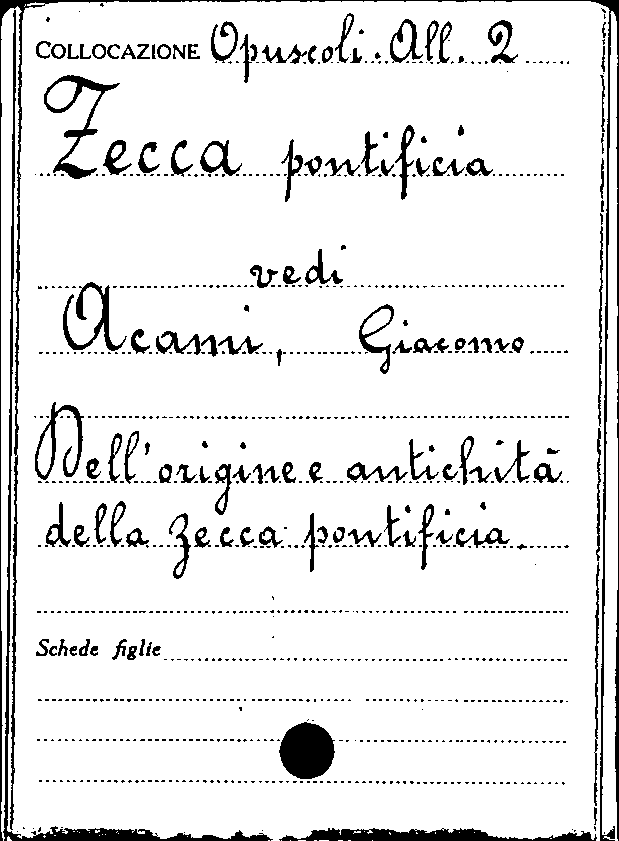 COLLOCAZIONE Opuscoli. All. 2
Zecca pontificia
vedi
Acami, Giacomo
Dell'origine e antichità
della zecca pontificia.
Schede figlie